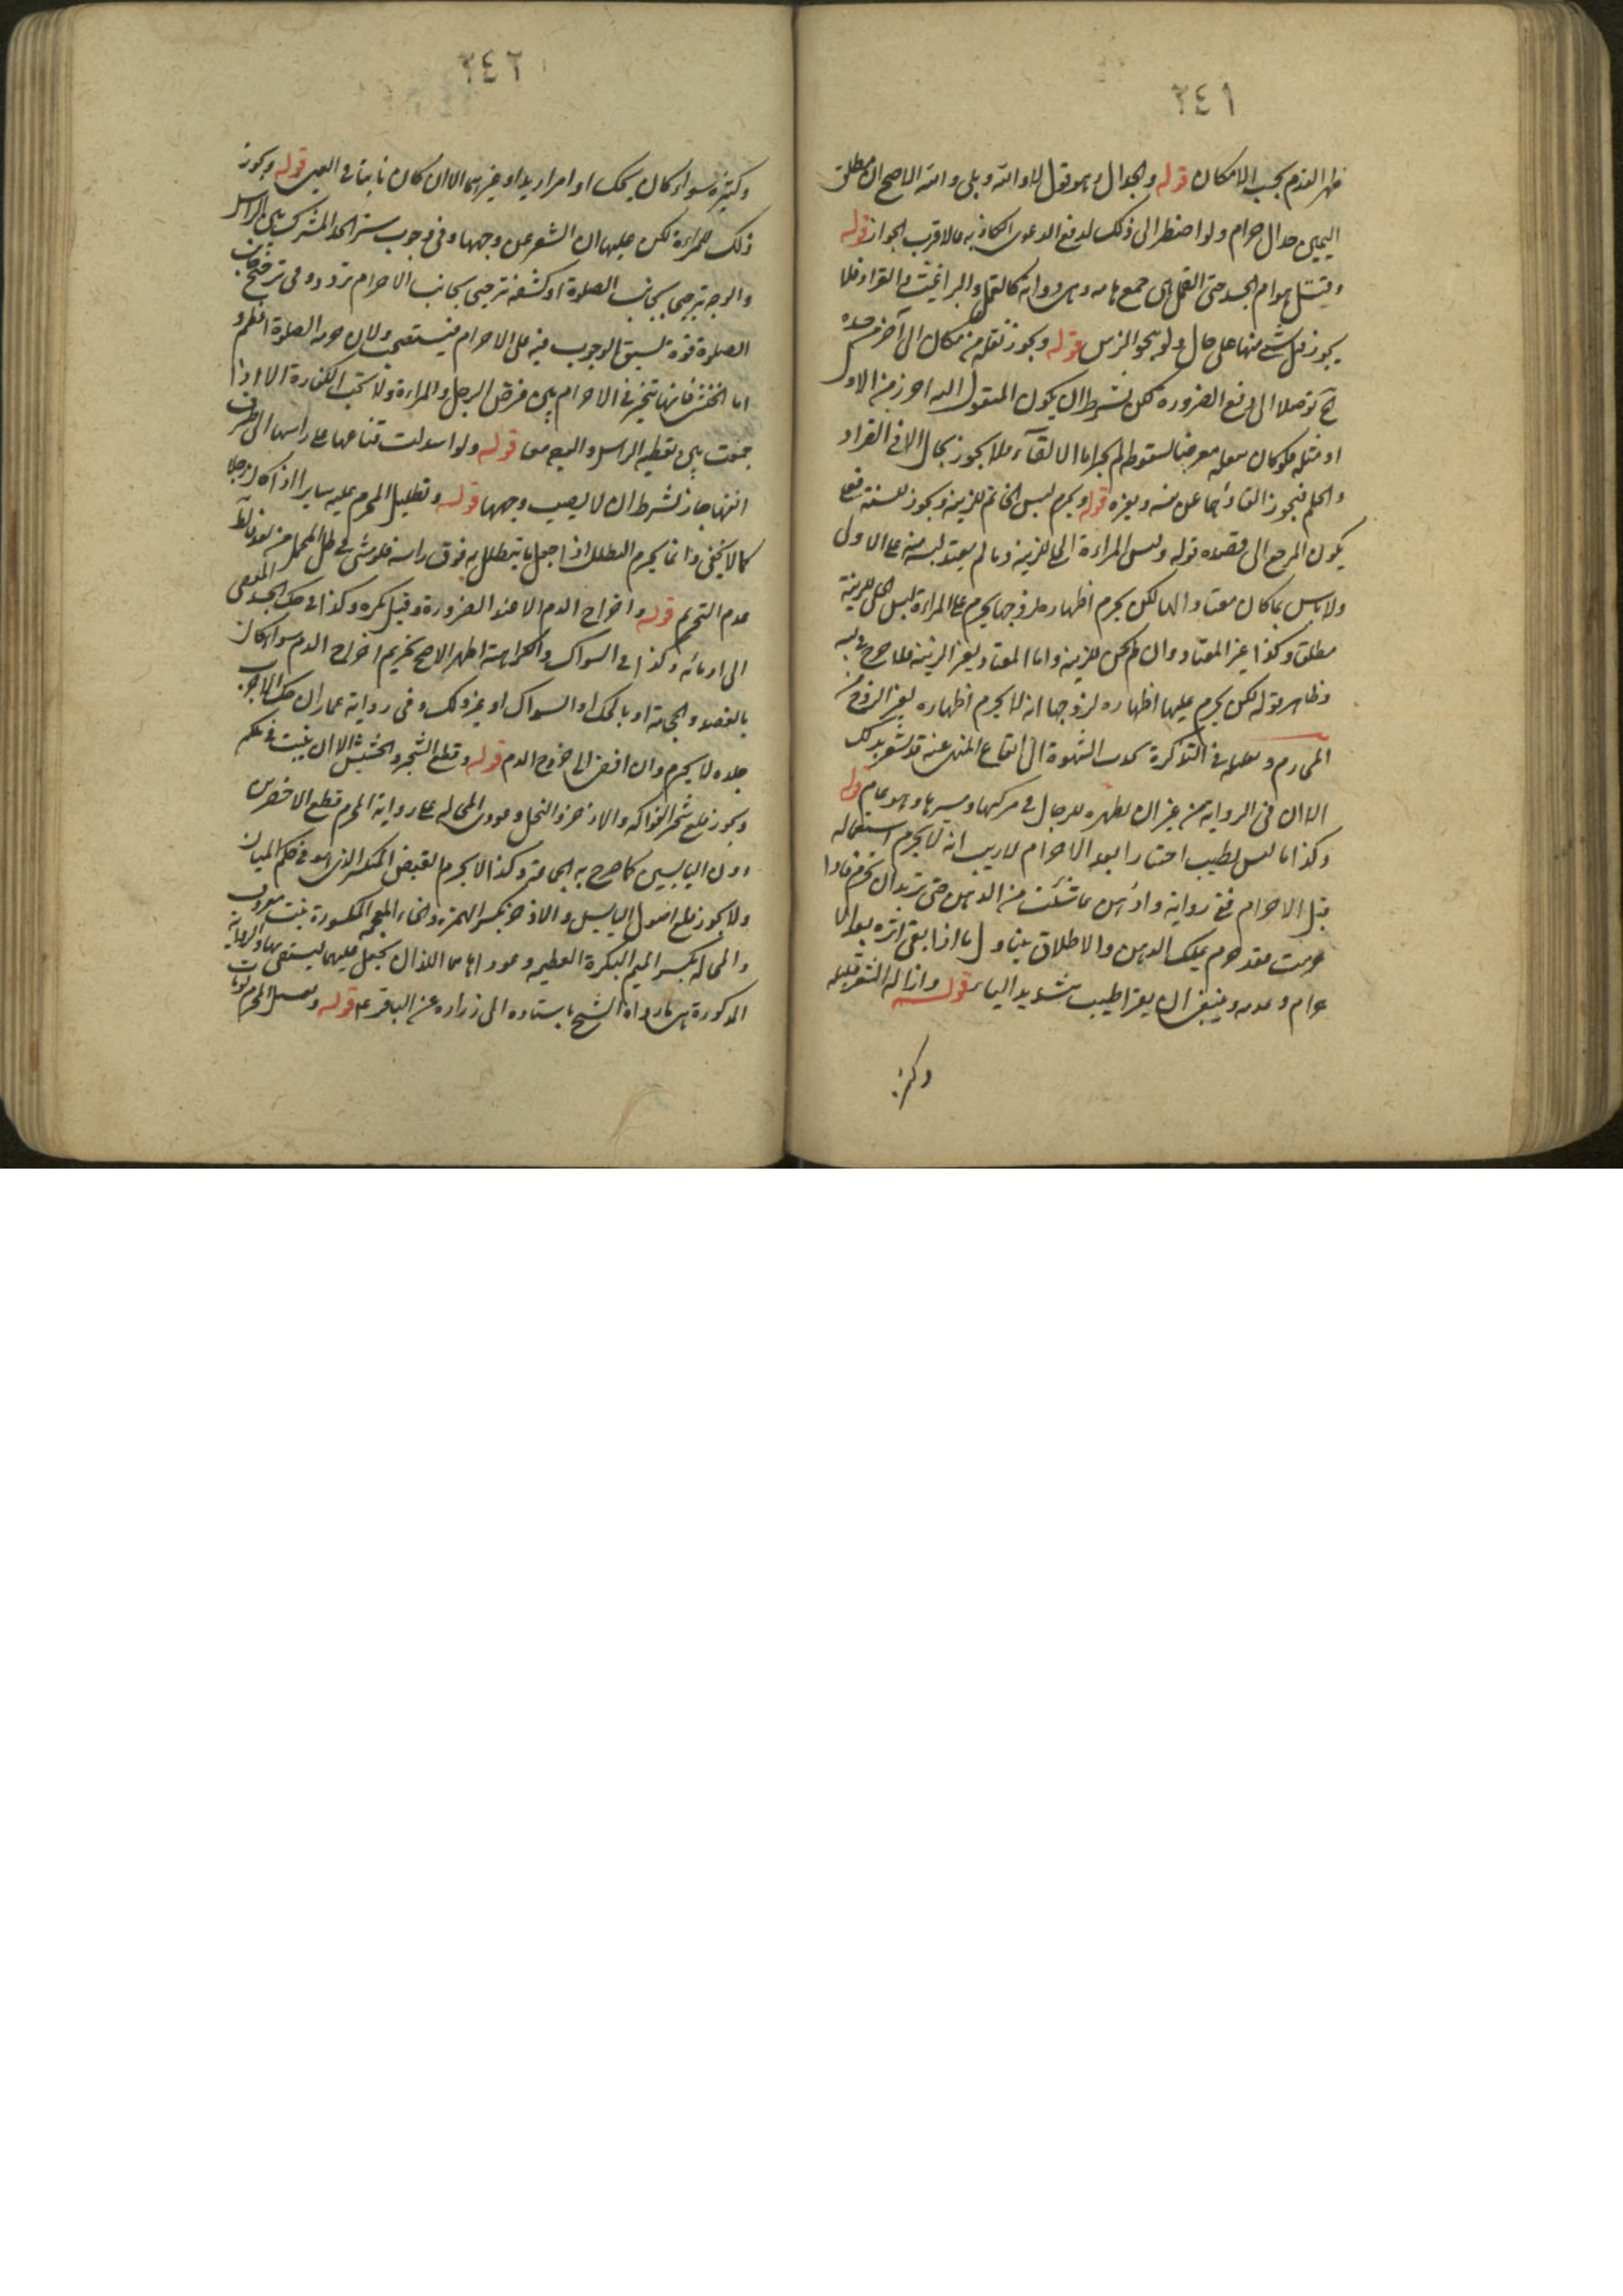 ٢٤١
ظهر القدم بحسب الامكان قوله والجدال وهو قول لا والله وبلى والله الاصح ان مطلق
اليمين جدال حرام ولو اضطر الى ذلك لدفع الدعوى الكاذبة فالاقرب الجواز قوله
وقتل هوام الجسد حتى القمل هى جمع هامه وهى دوابه كالقمل والبراغيث والقراد فلا
يجوز قتل شئ منها على حال ولو بنحو الزيبق قوله ويجوز نقله من مكان الى آخر من جسده
توصلا الى دفع الضرورة لكن بشرط ان يكون المنقول اليه احرز من الاول
او مثله فلو كان نقله معرضا لسقوطه لم يجز اما الالقاء فلا يجوز بحال الا فى القراد
والحلم فيجوز القاؤهما عن نفسه وبعيره قوله ويحرم لبس الخاتم للزينة ويجوز للسنة
يكون المرجع الى قصده قوله ولبس المراءة الحلى للزينة وما لم يعتد لبسه منه على الاولى
ولا باس بما كان معتادا لها لكن يحرم اظهاره لزوجها يحرم على المراءة لبس الحلى للزينة
مطلقا وكذا غير المعتاد وان لم يكن للزينة واما المعتاد لغير الزينة فلا حرج فى لبسه
وظاهر قوله لكن يحرم عليها اظهاره لزوجها انه لا يحرم اظهاره لغير الزوج من
المحارم وتعليله فى التذكرة الشهوة الى ايقاع المنهى عنه قد يشعر بذلك
الا ان فى الرواية من غير ان تظهره للرجال فى مركبها ومسيرها وهو عام قوله
وكذا ما ليس بطيب اختيارا بعد الاحرام لا ريب انه لا يحرم استعماله
قبل الاحرام ففى رواية وادهن بما شئت من الدهن حين تريد ان تحرم فاذا
احرمت فقد حرم عليك الدهن والاطلاق يتناول ما اذا بقى اثره بعد الاحرام
حرام وعدمه وينبغى ان يقرا طيب بتشديد الياء قوله وازالة الشعر قليله
وكثيره
٢٤٢
وكثيره سواء كان بحك او امرار يد او غيرهما الا ان كان نابتا فى العين قوله ويجوز
ذلك للمراءة لكن عليها ان تسفر عن وجهها وفى وجوب ستر الحد المشترك بين الراس
والوجه ترجيحا بجانب الصلوة او كشفه ترجيحا بجانب الاحرام تردد وفى ترجيح جانب
الصلوة قوة لسبق الوجوب فيه على الاحرام فيستصحب ولان حرمة الصلوة اعظم و
اما الخنثى فانها تتخير فى الاحرام بين فرض الرجل والمراءة ولا تجب الكفارة الا اذا
جمعت بين تغطية الراس والوجه معا قوله ولو اسدلت قناعها على راسها الى طرف
انفها جاز بشرط ان لا يصيب وجهها قوله وتظليل المحرم عليه سايرا اذا كان رجلا
كما لا يخفى وانما يحرم التظلل اذا جعل ما يتظلل به فوق راسه فلو مشى فى ظل المحمل
عدم التحريم قوله واخراج الدم الا عند الضرورة وقيل يكره وكذا فى حك الجسد المفضى
الى ادمائه وكذا فى السواك والكراهة اظهر الاصح تحريم اخراج الدم سواء كان
بالفصد والحجامة او بالحك او السواك او غير ذلك وفى رواية عمار ان حك الاجرب
جلده لا يحرم وان افضى الى خروج الدم قوله وقطع الشجر والحشيش الا ان ينبت فى ملكه
ويجوز قلع شجر الفواكه والاذخر والنخل وعودى المحاله على رواية المحرم قطع الاخضرين
دون اليابسين كما صرح به الجماعة وكذا لا يحرم القبض المنكسر الذى هو فى حكم الميت
ولا يجوز قلع اصول اليابس والاذخر بكسر الهمزة والخاء المعجمة المكسورة نبت معروف
والمحاله بكسر الميم البكرة العظيمة وعوداها هما اللذان تجعل عليهما ليستقى بها والرواية
المذكورة هى ما رواه الشيخ باسناده الى زرارة عن الباقر ع قوله وتغسيل المحرم لو مات